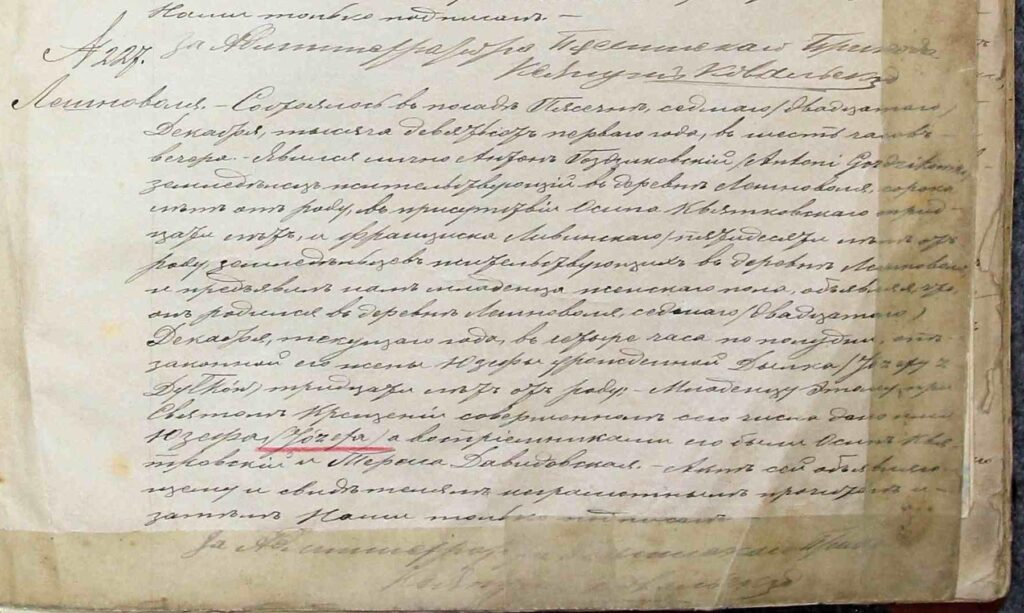 Нами только подписанъ. —
За Администратора Пясечнскаго Прихода
№ 227.
Лешноволя. — Состоялось въ посадѣ Пясечнѣ, седмаго /двадцатаго/
Декабря, тысяча девятьсотъ перваго года, въ шесть часовъ
вечера. — Явился лично Антонъ Гоздзиковскій /Antoni Gozdzikowski/
земледѣлецъ жительствующій въ деревнѣ Лешноволя, сорока
лѣтъ отъ роду, въ присутствіи Осипа Квятковскаго трид-
цати лѣтъ, и Франциска Ливинскаго /пятидесяти лѣтъ отъ
роду, земледѣльцевъ жительствующихъ въ деревнѣ Лешноволя
и предъявилъ намъ младенца женскаго пола, объявляя, что
онъ родился въ деревнѣ Лешноволя, седмаго /двадцатаго/
Декабря, текущаго года, въ четыре часа по полудни, отъ
законной его жены Юзефы урожденной Дылка /Józefy z
Dylków/ тридцати лѣтъ отъ роду. — Младенцу этому, при
Святомъ Крещеніи совершенномъ сего числа дано имя
Юзефа /Józefa/ а воспріемниками его были Осипъ Квя-
тковскій и Тереса Давидовская. — Актъ сей объявляю-
щему и свидѣтелямъ неграмотнымъ прочитанъ и
затѣмъ Нами только подписанъ
За Администратора